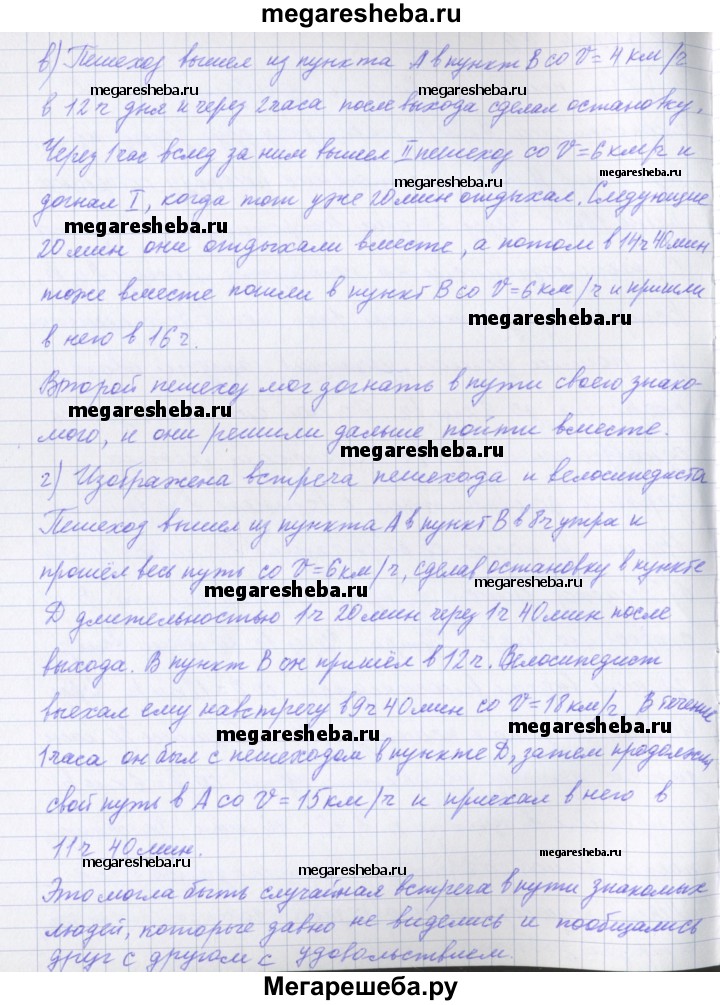 megaresheba.ru
в) Пешеход вышел из пункта А в пункт В со V = 4 км/ч
megaresheba.ru megaresheba.ru
в 12 ч дня и через 2 часа после выхода сделал остановку.
Через 1 час вслед за ним вышел II пешеход со V = 6 км/ч и
megaresheba.ru megaresheba.ru
догнал I, когда тот уже 20 мин отдыхал. Следующие
megaresheba.ru
20 мин они отдыхали вместе, а потом в 14 ч 40 мин
тоже вместе пошли в пункт В со V = 6 км/ч и пришли
megaresheba.ru
в него в 16 ч.
Второй пешеход мог догнать в пути своего знако-
megaresheba.ru
мого, и они решили дальше пойти вместе.
megaresheba.ru
г) Изображена встреча пешехода и велосипедиста
Пешеход вышел из пункта А в пункт В в 8 ч утра и
прошёл весь путь со V = 6 км/ч, сделав остановку в пункте
megaresheba.ru megaresheba.ru
D длительностью 1 ч 20 мин через 1 ч 40 мин после
выхода. В пункт В он пришёл в 12 ч. Велосипедист
выехал ему навстречу в 9 ч 40 мин со V = 18 км/ч. В течение
megaresheba.ru megaresheba.ru
1 часа он был с пешеходом в пункте D, затем продолжил
свой путь в А со V = 15 км/ч и приехал в него в
11 ч 40 мин.
megaresheba.ru megaresheba.ru megaresheba.ru
Это могла быть случайная встреча в пути знакомых
людей, которые давно не виделись и пообщались
друг с другом с удовольствием.
Мегарешеба.ру